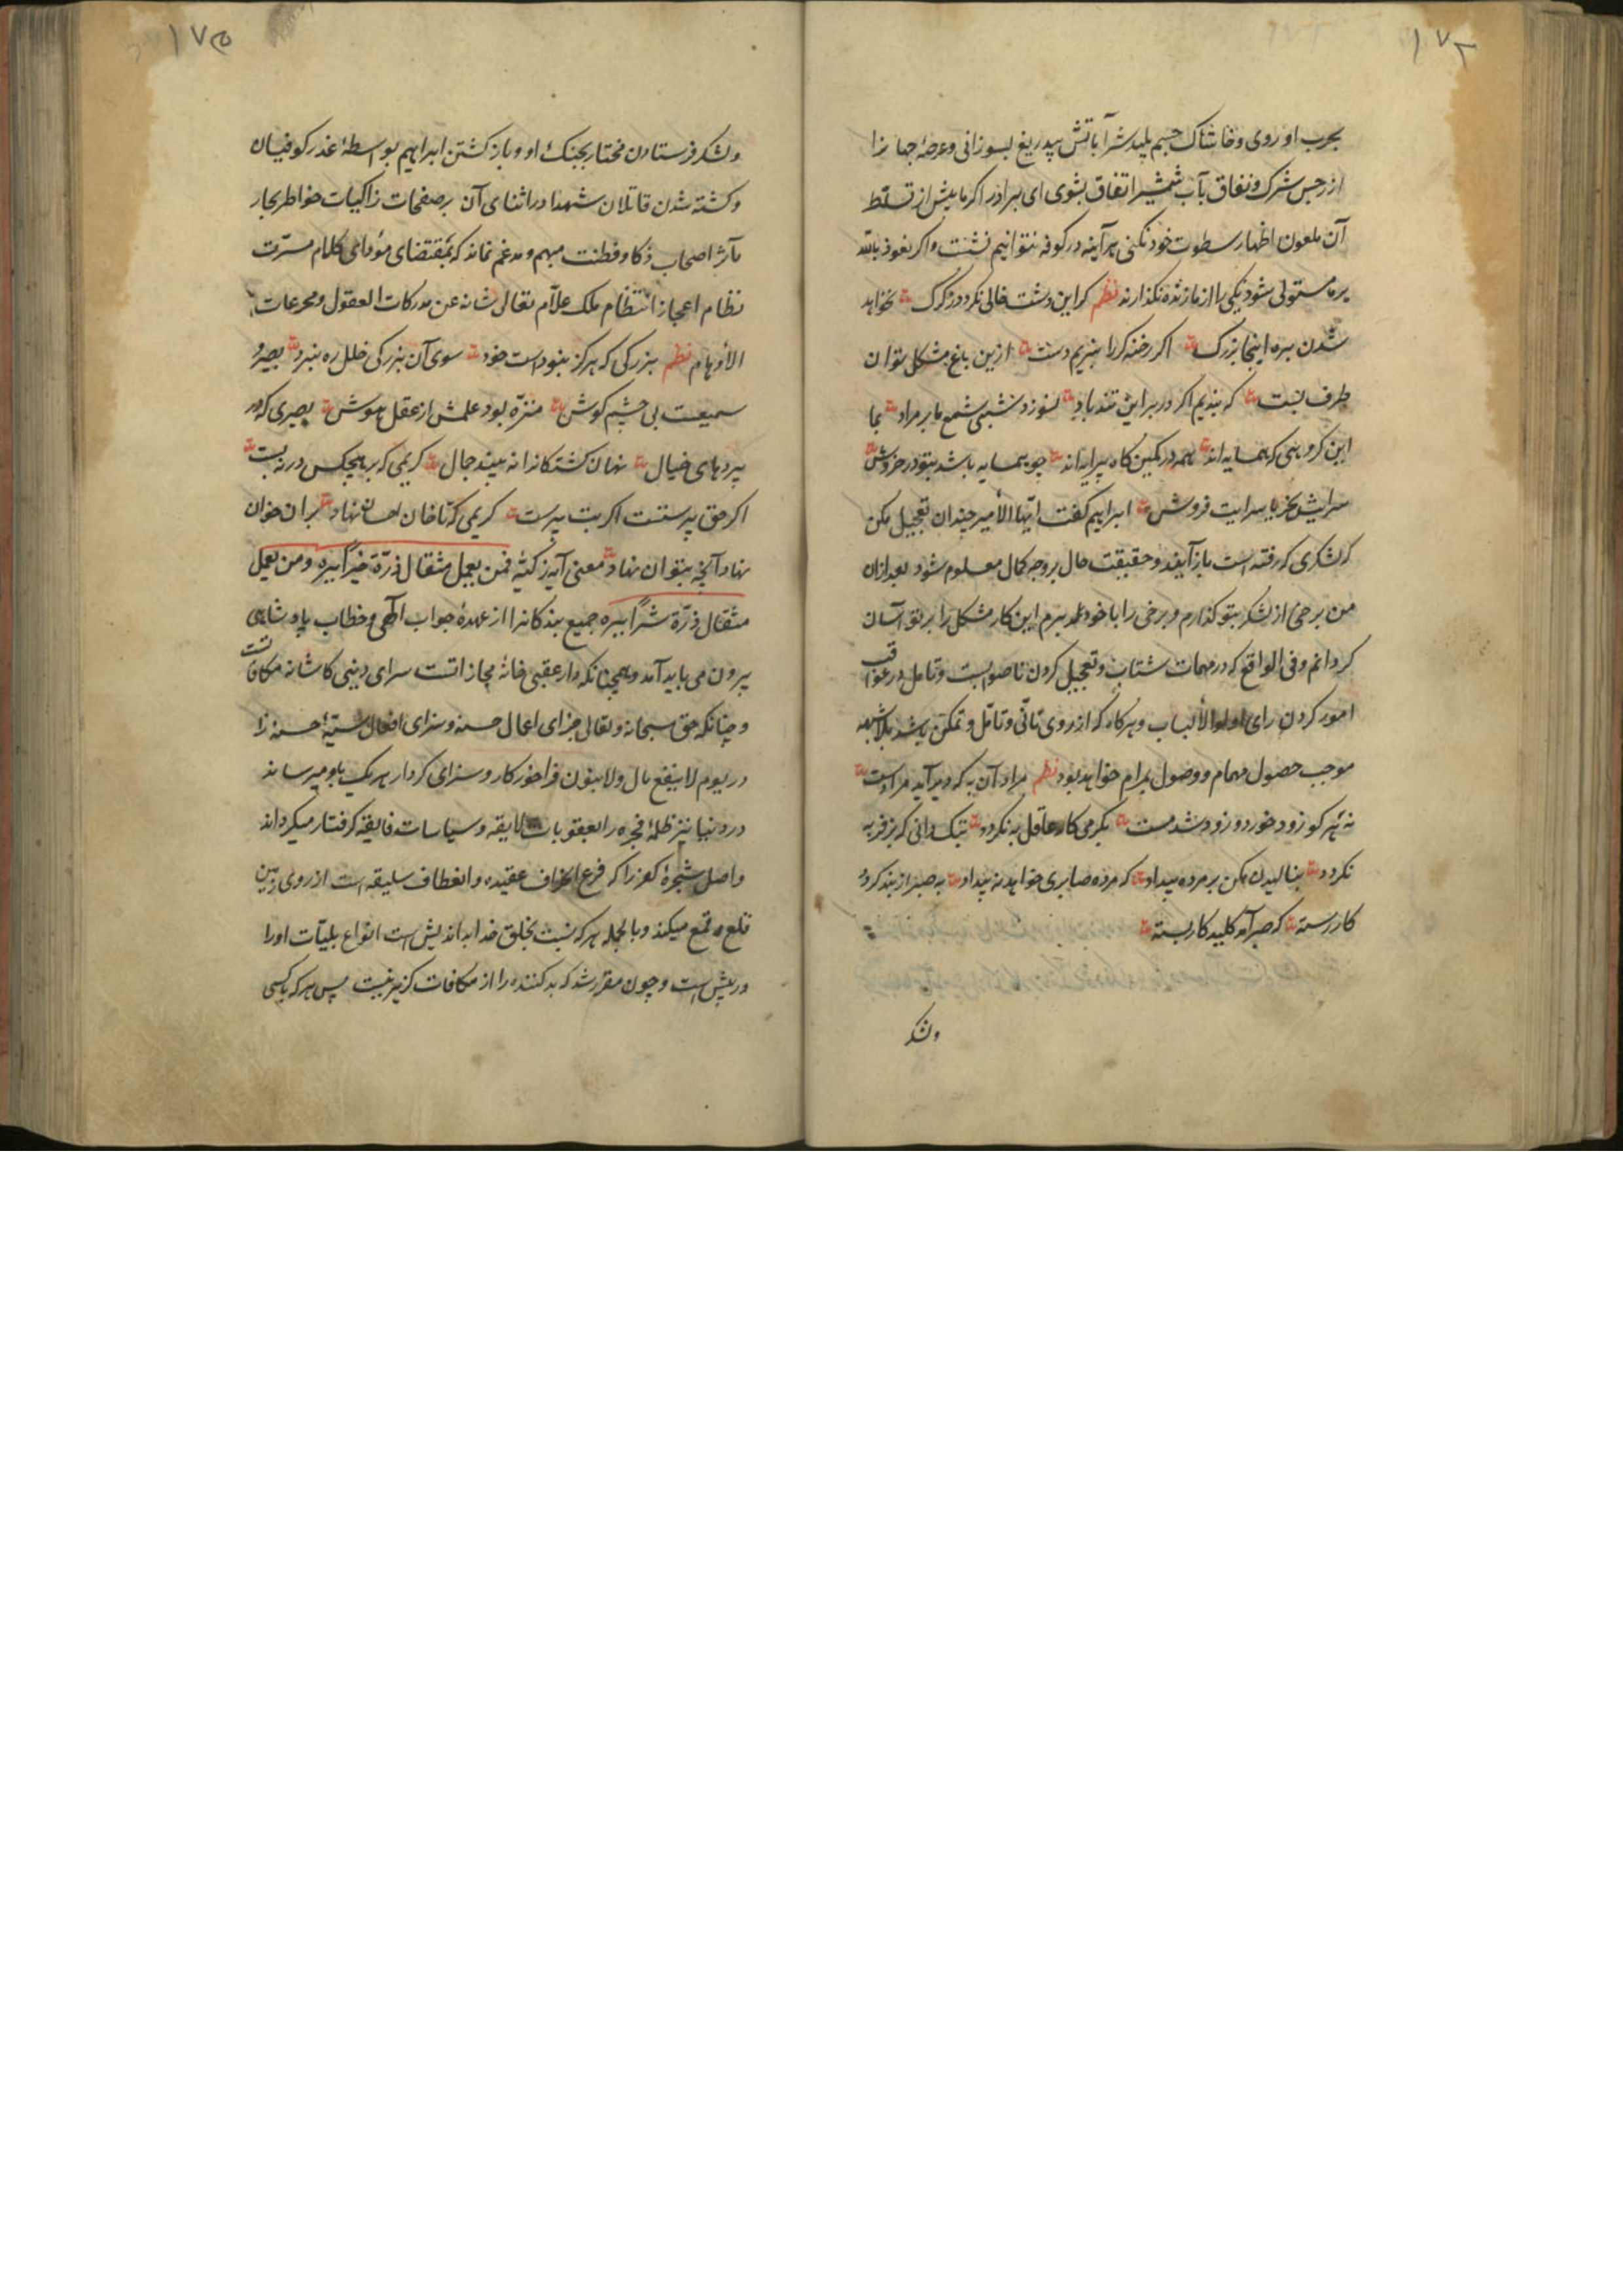 ۱۷۲
بحرب او روی و خاشاک جسم پلید شرآباتش بیدریغ بسوزانی و عرصهٔ جهانرا
از رجس شرک و نفاق بآب شمشیر اتفاق بشوی ای برادر اکر ما پیش از تسلط
آن ملعون اظهار سطوت خود نکنی هرآینه در کوفه نتوانیم نشست و اکر نعوذ بالله
بر ما مستولی شود یکی را از ما زنده نکذارند نظم کر این دشت خالی نکردد ز کرک نخواهد
شدن بره اینجا بزرک اکر رخنه کر را نبریم دست ازین باغ مشکل توان
طرف بست که بندیم اکر در بر این تند باد نسوزد شبی شمع ما بر مراد بما
این کروهی که همسایه اند همه در کمین کاه پیرایه اند چو همسایه باشد بتو در خروش
سرایش بخر یا سرایت فروش ابراهیم کفت ایها الأمیر چندان تعجیل مکن
که لشکری که رفته است بازآیند و حقیقت حال بر وجه کمال معلوم شود بعد ازان
من برخی از لشکر بتو کذارم و برخی را با خود ببرم این کار مشکل را بر تو آسان
کردانم و فی الواقع که در مهمات شتاب و تعجیل کردن ناصوابست و تامل در عواقب
امور کردن رای اولوالألباب و هر کار که از روی تأنی و تامل و تمکن باشد بلاشبهه
موجب حصول مهام و وصول بمرام خواهد بود نظم مراد آن به که دیر آید مرادست
نه هر کو زود خورد و زود شد مست بکرمی کار عاقل به نکردد بتک دانی که بز فربه
نکردد بنالیدن مکن بر مرده بیداد که مرده صابری خواهد نه بیداد به صبر از بند کردد
کار رسته که صبر آمد کلید کار بسته
ولشکر
۱۷۵
ولشکر فرستادن مختار بجنک او و باز کشتن ابراهیم بواسطهٔ غدر کوفیان
و کشته شدن قاتلان شهدا در اثنای آن بر صفحات زاکیات خواطر بحار
مآثر اصحاب ذکا و فطنت مبهم و مدغم نماند که بمقتضای مؤدای کلام مسرت
نظام اعجاز انتظام ملک علّام تعالی شانه عن مدرکات العقول و مخرعات
الأوهام نظم بزرکی که هرکز نبوداست خود سوی آن بزرکی خلل ره نبرد بصیر و
سمیعست بی چشم کوش منزّه بود علمش از عقل و هوش بصیری که در
پردهای خیال نهان کشتکانرا نه بیند جمال کریمی که بر هیچکس در نبست
اکر حق پرستست اکر بت پرست کریمی که تا خان احسان نهاد بران خوان
نهاد آنچه بتوان نهاد معنی آیه زکیّه فمن یعمل مثقال ذرّة خیراً یره و من یعمل
مثقال ذرّة شرّاً یره جمیع بندکانرا از عهدهٔ جواب الهی و خطاب پادشاهی
بیرون می باید آمد و همچنانکه دار عقبی خانهٔ مجازاتست سرای دنیی کاشانه مکافاتست
و چنانکه حق سبحانه و تعالی جزای اعمال حسنه و سزای افعال سیّئهٔ
در یوم لاینفع مال و لا بنون فراخور کار و سزای کردار هر یک باو میرساند
در دنیا نیز ظلمهٔ فجره را بعقوبات لایقه و سیاسات فایقه کرفتار میکرداند
و اصل شجرهٔ کفر را که فرع انحراف عقیده و انعطاف سلیقه است از روی زمین
قلع و قمع میکند و بالجمله هر که نسبت بخلق خدا بداندیش است انواع بلیّات او را
در پیش است و چون مقرر شد که بدکننده را از مکافات کزیر نیست پس هر که باکسی